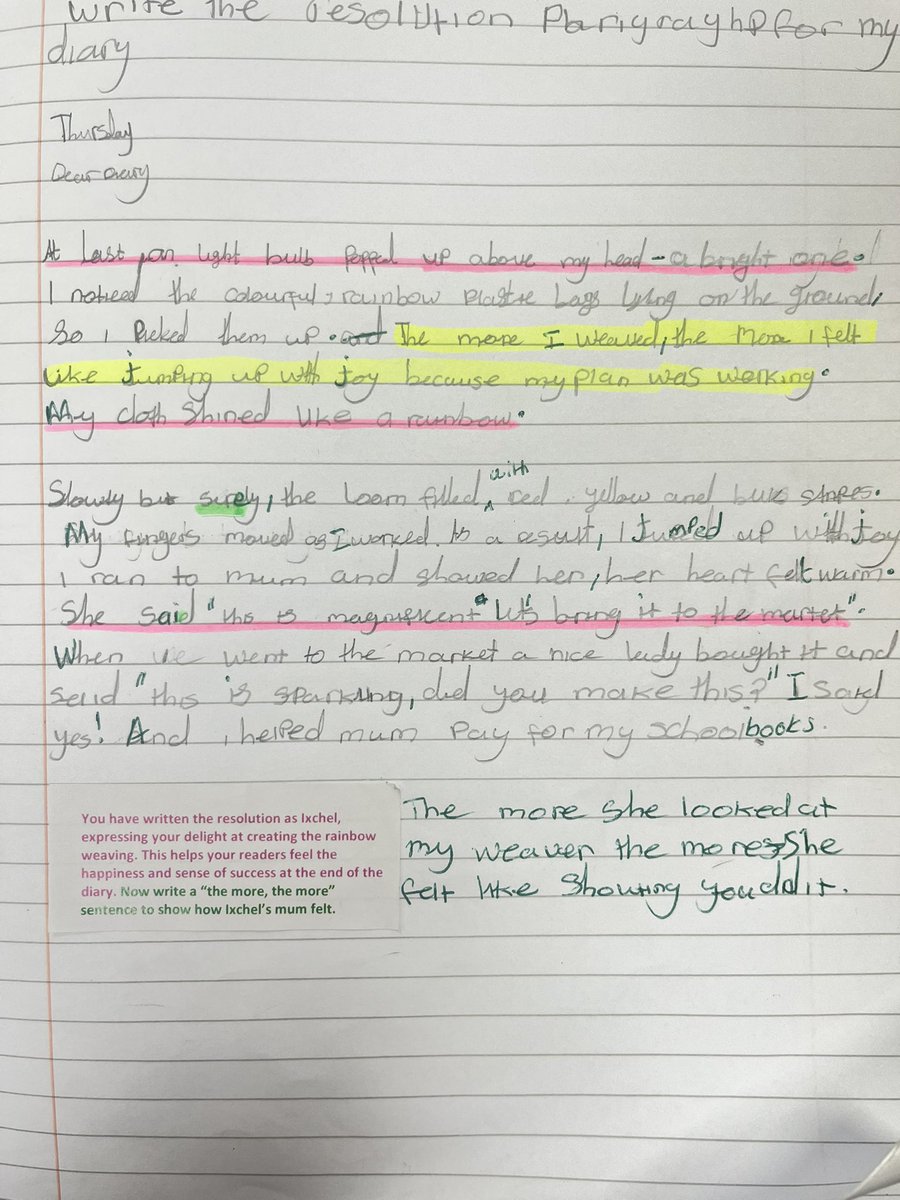 write the resolution Parigrayhp for my
diary
Thursday
Dear Diary
At last an light bulb popped up above my head - a bright one.
I noticed the colourful, rainbow plastic bags lying on the ground.
So I Picked them up. and The more I weaved, the more I felt
like jumping up with joy because my plan was working.
My cloth shined like a rainbow.
Slowly but surely, the loom filled with red. yellow and bule stripes.
My fingers moved as I worked. As a result, I jumped up with joy
I ran to mum and showed her, her heart felt warm.
She said "this is magnificent" let's bring it to the market".
When we went to the market a nice lady bought it and
said "this is sparkling, did you make this?" I said
yes! And i helped mum Pay for my schoolbooks.
You have written the resolution as Ixchel,
expressing your delight at creating the rainbow
weaving. This helps your readers feel the
happiness and sense of success at the end of the
diary. Now write a "the more, the more"
sentence to show how Ixchel's mum felt.
The more she looked at
my weaver the more she
felt like Shouting you did it.